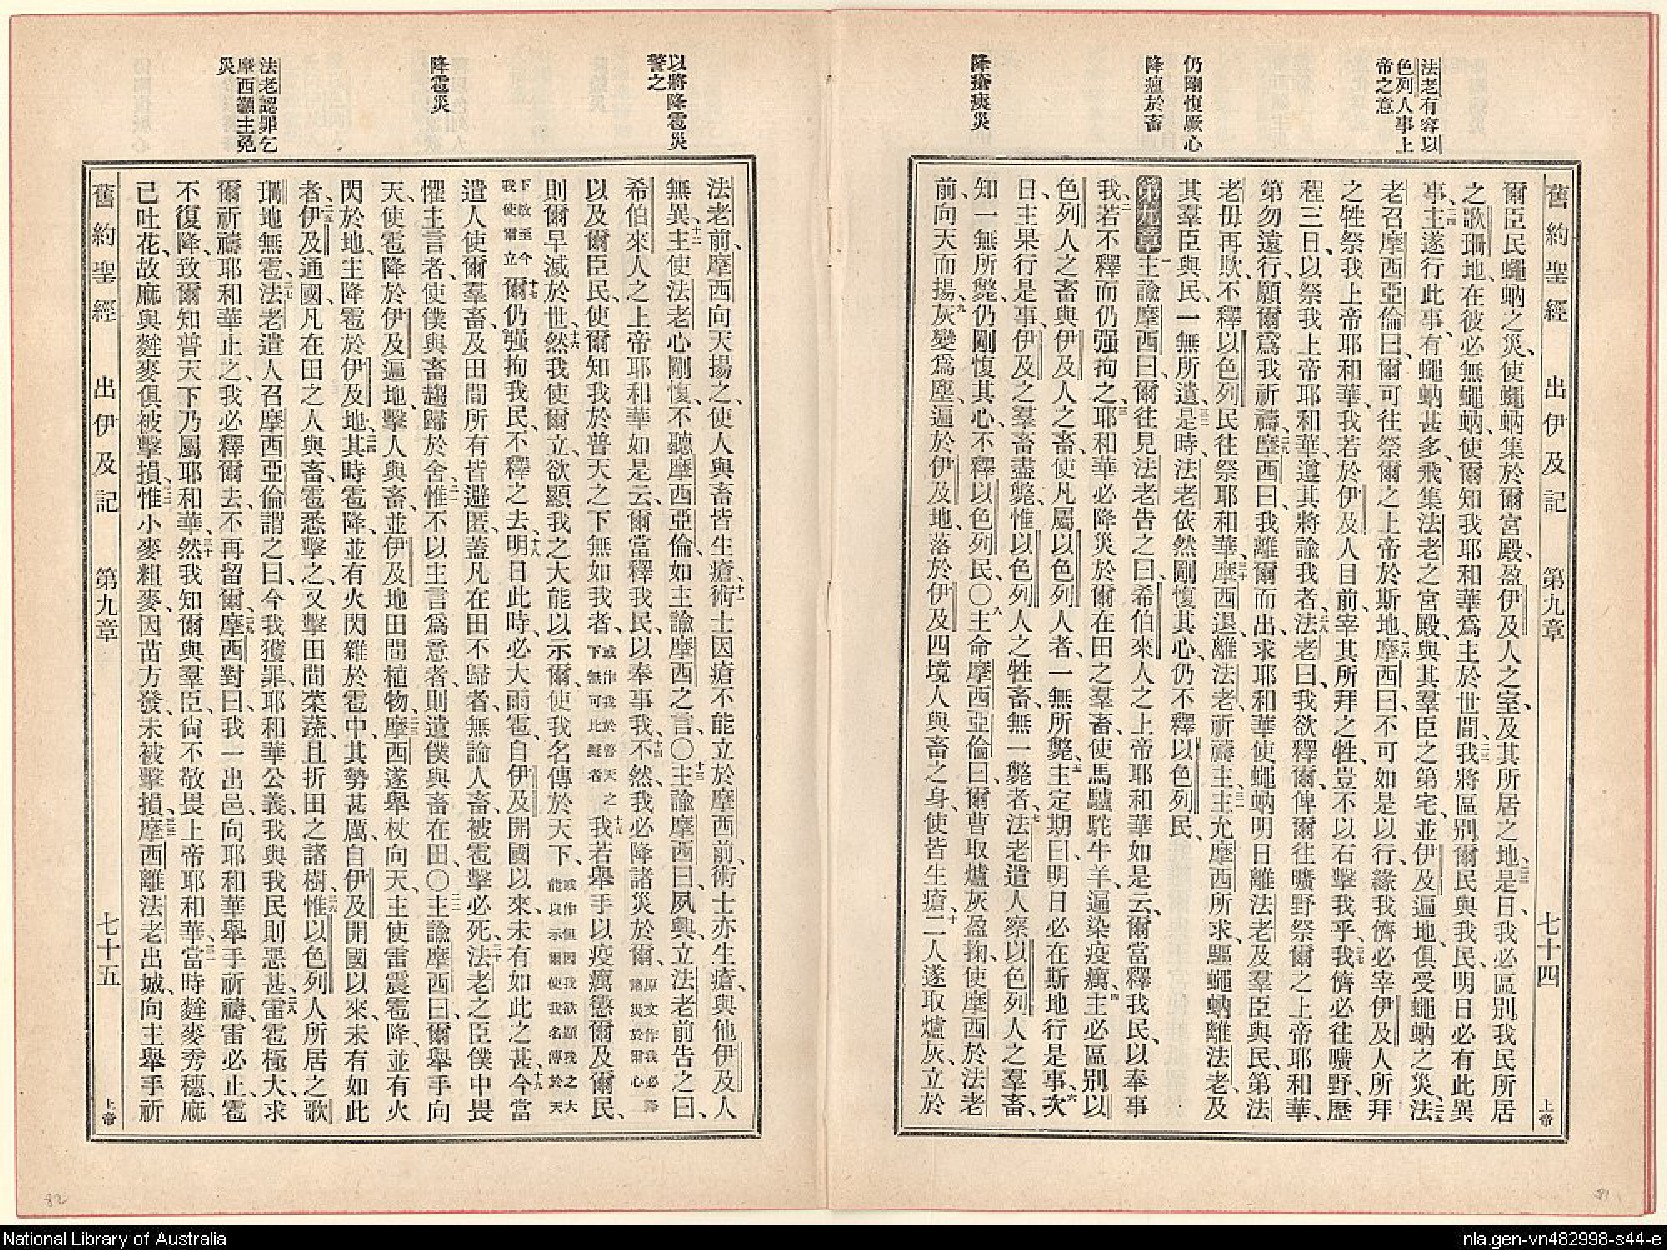 法老有容以
色列人事上
帝之意
仍剛愎厥心
降瘟於畜
降瘡痍災
舊約聖經 出伊及記 第九章 七十四 上帝
爾臣民、蠅蚋之災、使蠅蚋集於爾宮殿、盈伊及人之室、及其所居之地、二二是日、我必區別我民所居
之歌珊地、在彼必無蠅蚋、使爾知我耶和華為主於世間、二三我將區別爾民與我民、明日必有此異
事、二四主遂行此事、有蠅蚋甚多、飛集法老之宮殿、與其羣臣之第宅、並伊及遍地、俱受蠅蚋之災、二五法
老召摩西亞倫曰、爾可往祭爾之上帝於斯地、二六摩西曰、不可如是以行、緣我儕必宰伊及人所拜
之牲祭我上帝耶和華、我若於伊及人目前、宰其所拜之牲、豈不以石擊我乎、二七我儕必往曠野、歷
程三日、以祭我上帝耶和華、遵其將諭我者、二八法老曰、我欲釋爾、俾爾往曠野祭爾之上帝耶和華、
第勿遠行、願爾為我祈禱、二九摩西曰、我離爾而出、求耶和華使蠅蚋明日離法老及羣臣與民、第法
老毋再欺、不釋以色列民往祭耶和華、三十摩西退離法老、祈禱主、三一主允摩西所求、驅蠅蚋離法老、及
其羣臣與民、一無所遺、三二是時、法老依然剛愎其心、仍不釋以色列民、
第九章 一主諭摩西曰、爾往見法老告之曰、希伯來人之上帝耶和華如是云、爾當釋我民、以奉事
我、二若不釋而仍强拘之、三耶和華必降災於爾在田之羣畜、使馬驢駝牛羊、遍染疫癘、四主必區別以
色列人之畜與伊及人之畜、使凡屬以色列人者、一無所斃、五主定期曰、明日必在斯地行是事、六次
日、主果行是事、伊及之羣畜盡斃、惟以色列人之牲畜、無一斃者、七法老遣人察以色列人之羣畜、
知一無所斃、仍剛愎其心、不釋以色列民、〇八主命摩西亞倫曰、爾曹取爐灰盈掬、使摩西於法老
前、向天而揚、九灰變為塵、遍於伊及地、落於伊及四境人與畜之身、使皆生瘡、十二人遂取爐灰、立於
以將降雹災
警之
降雹災
法老認罪乞
摩西籲主免
災
法老前、摩西向天揚之、使人與畜皆生瘡、十一術士因瘡不能立於摩西前、術士亦生瘡、與他伊及人
無異、十二主使法老心剛愎、不聽摩西亞倫、如主諭摩西之言、〇十三主諭摩西曰、夙興、立法老前告之曰、
希伯來人之上帝耶和華如是云、爾當釋我民、以奉事我、十四不然、我必降諸災於爾、原文作我必降諸災於爾心
以及爾臣民、使爾知我於普天之下無如我者、或作我於普天之下無可比擬者 十五我若舉手以疫癘懲爾及爾民、
則爾早滅於世、十六然我使爾立、欲顯我之大能以示爾、使我名傳於天下、或作但因我欲顯我之大能以示爾使我名傳於天
下故至今我使爾立 十七爾仍强拘我民、不釋之去、十八明日此時、必大雨雹、自伊及開國以來、未有如此之甚、十九今當
遣人使爾羣畜、及田間所有皆避匿、蓋凡在田不歸者、無論人畜、被雹擊必死、二十法老之臣僕中、畏
懼主言者、使僕與畜趨歸於舍、二一惟不以主言為意者、則遺僕與畜在田、〇二二主諭摩西曰、爾舉手向
天、使雹降於伊及遍地、擊人與畜、並伊及地田間植物、二三摩西遂舉杖向天、主使雷震雹降、並有火
閃於地、主降雹於伊及地、二四其時雹降、並有火閃雜於雹中、其勢甚厲、自伊及開國以來、未有如此
者、二五伊及通國、凡在田之人與畜、雹悉擊之、又擊田間菜蔬、且折田之諸樹、二六惟以色列人所居之歌
珊地無雹、二七法老遣人召摩西亞倫謂之曰、今我獲罪、耶和華公義、我與我民則惡甚、二八雷雹極大、求
爾祈禱耶和華止之、我必釋爾去、不再留爾、二九摩西對曰、我一出邑、向耶和華舉手祈禱、雷必止、雹
不復降、致爾知普天下乃屬耶和華、三十然我知爾與羣臣、尙不敬畏上帝耶和華、三一當時麰麥秀穗、麻
已吐花、故麻與麰麥俱被擊損、三二惟小麥粗麥、因苗方發、未被擊損、三三摩西離法老出城、向主舉手祈
舊約聖經 出伊及記 第九章 七十五 上帝
82
81
National Library of Australia
nla.gen-vn482998-s44-e